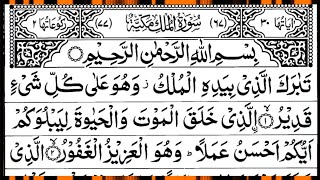 اٰیَاتُهَا ۳۰ (۶۷) سُوْرَةُ الْمُلْكِ مَكِّیَّةٌ (۷۷) رُكُوْعَاتُهَا ۲
بِسْمِ اللّٰهِ الرَّحْمٰنِ الرَّحِیْمِ
تَبٰرَكَ الَّذِیْ بِیَدِهِ الْمُلْكُ ؗ وَ هُوَ عَلٰی كُلِّ شَیْءٍ
قَدِیْرُۙ۝۱ ِ۟الَّذِیْ خَلَقَ الْمَوْتَ وَ الْحَیٰوةَ لِیَبْلُوَكُمْ
اَیُّكُمْ اَحْسَنُ عَمَلًا ؕ وَ هُوَ الْعَزِیْزُ الْغَفُوْرُۙ۝۲ الَّذِیْ